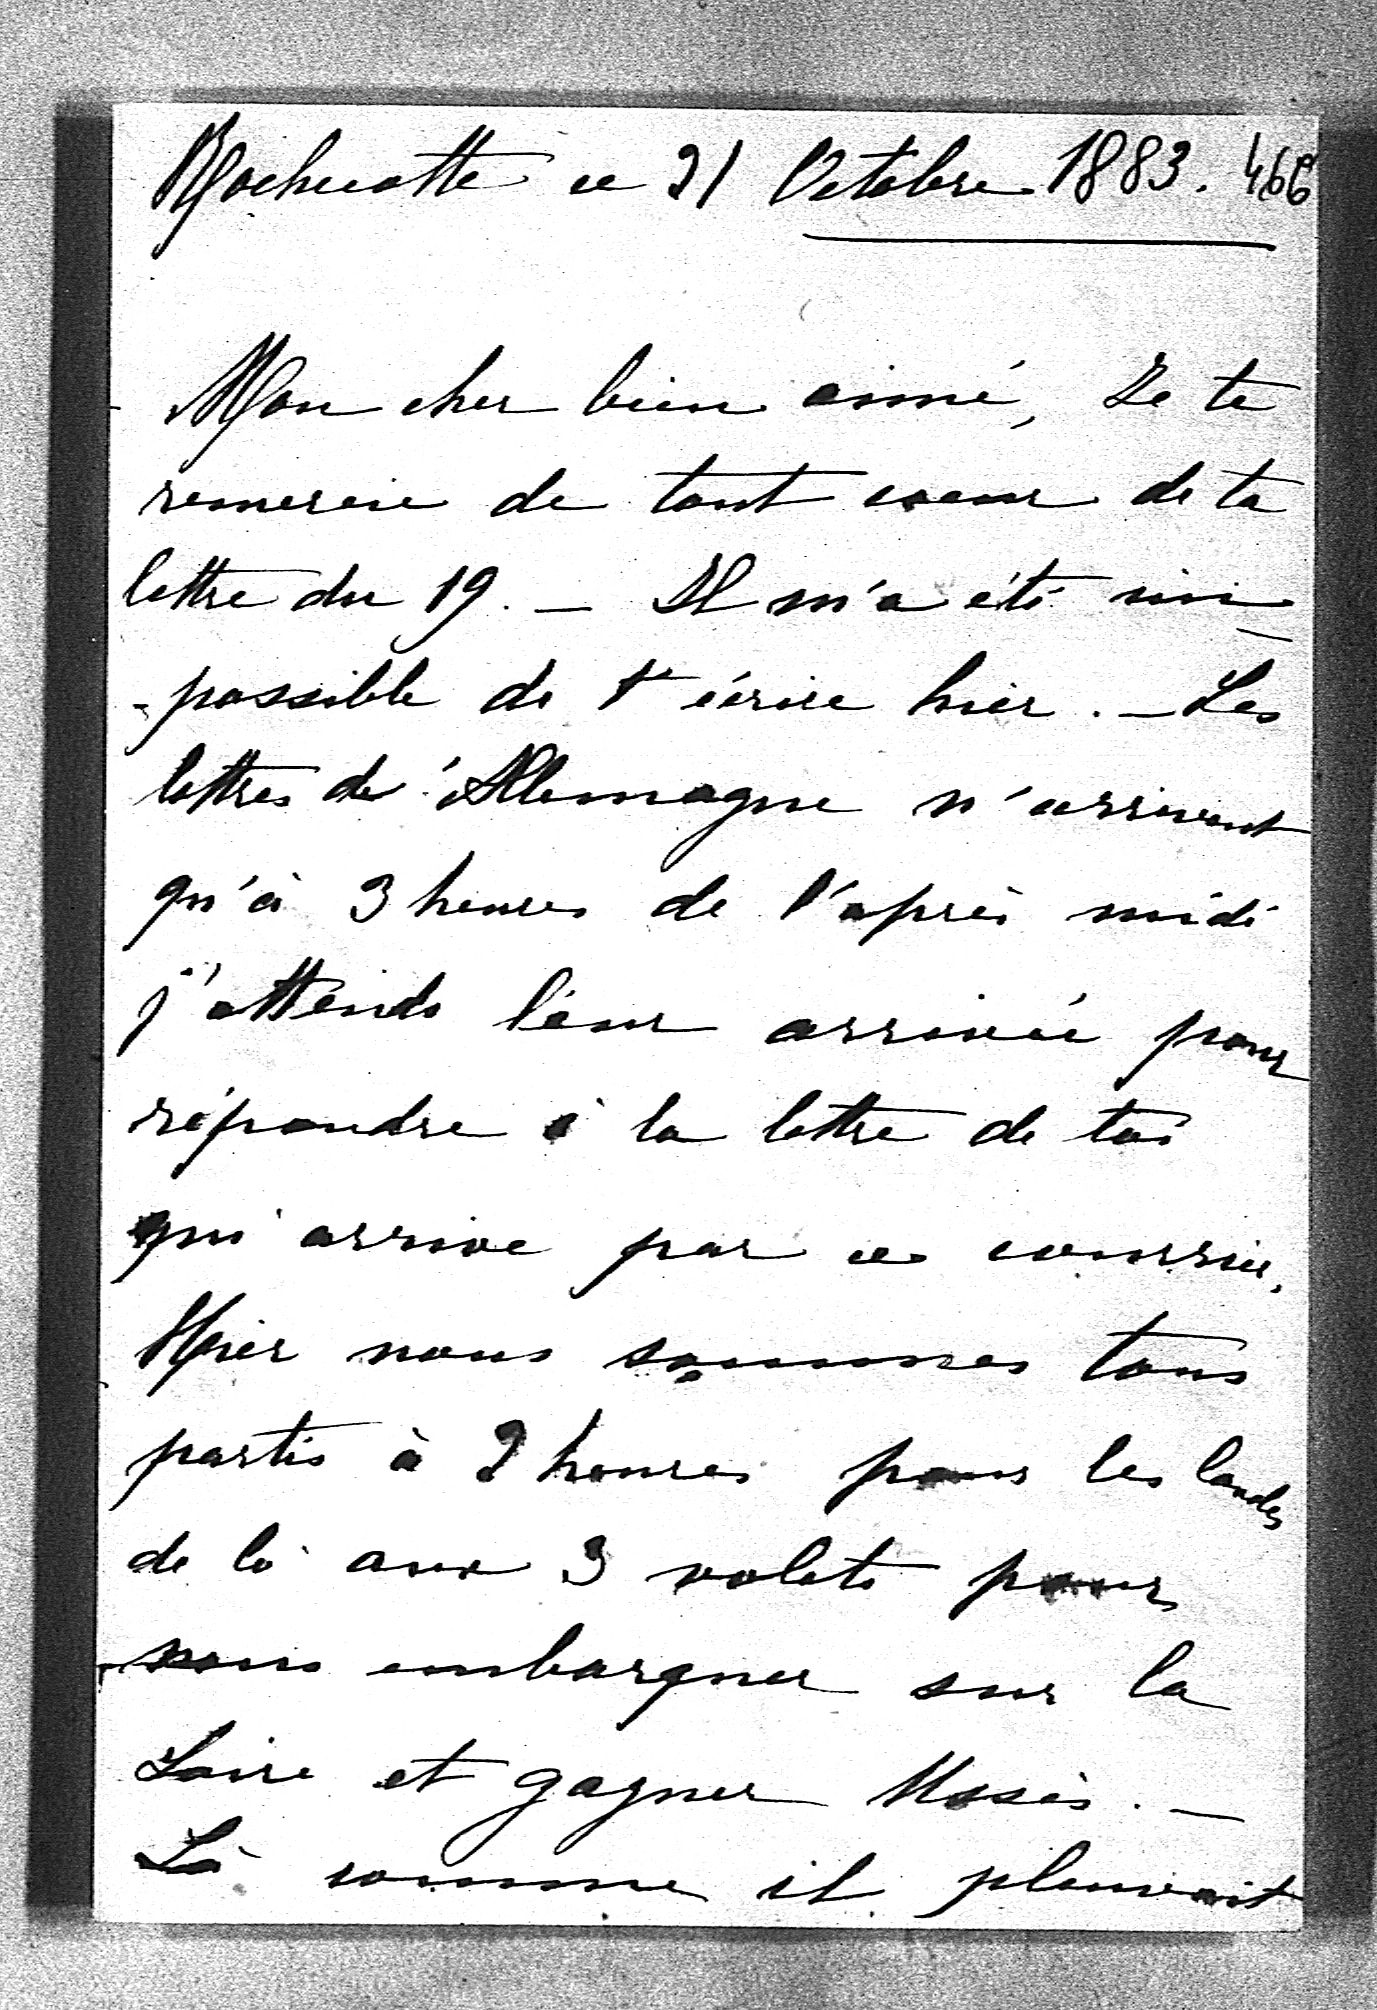 Rochecotte ce 21 Octobre 1883. 466
Mon cher bien aimé, Je te
remercie de tout coeur de ta
lettre du 19. – Il m'a été im
-possible de t'écrire hier. – Les
lettres de l'Allemagne n'arrivent
qu'à 3 heures de l'après midi
j'attends leur arrivée pour
répondre à la lettre de toi
qui arrive par ce courrier.
Hier nous sommes tous
partis à 2 heures pour les landes
de là aux 3 volets pour
nous embarquer sur la
Loire et gagner Ussé. –
Là comme il pleuvait